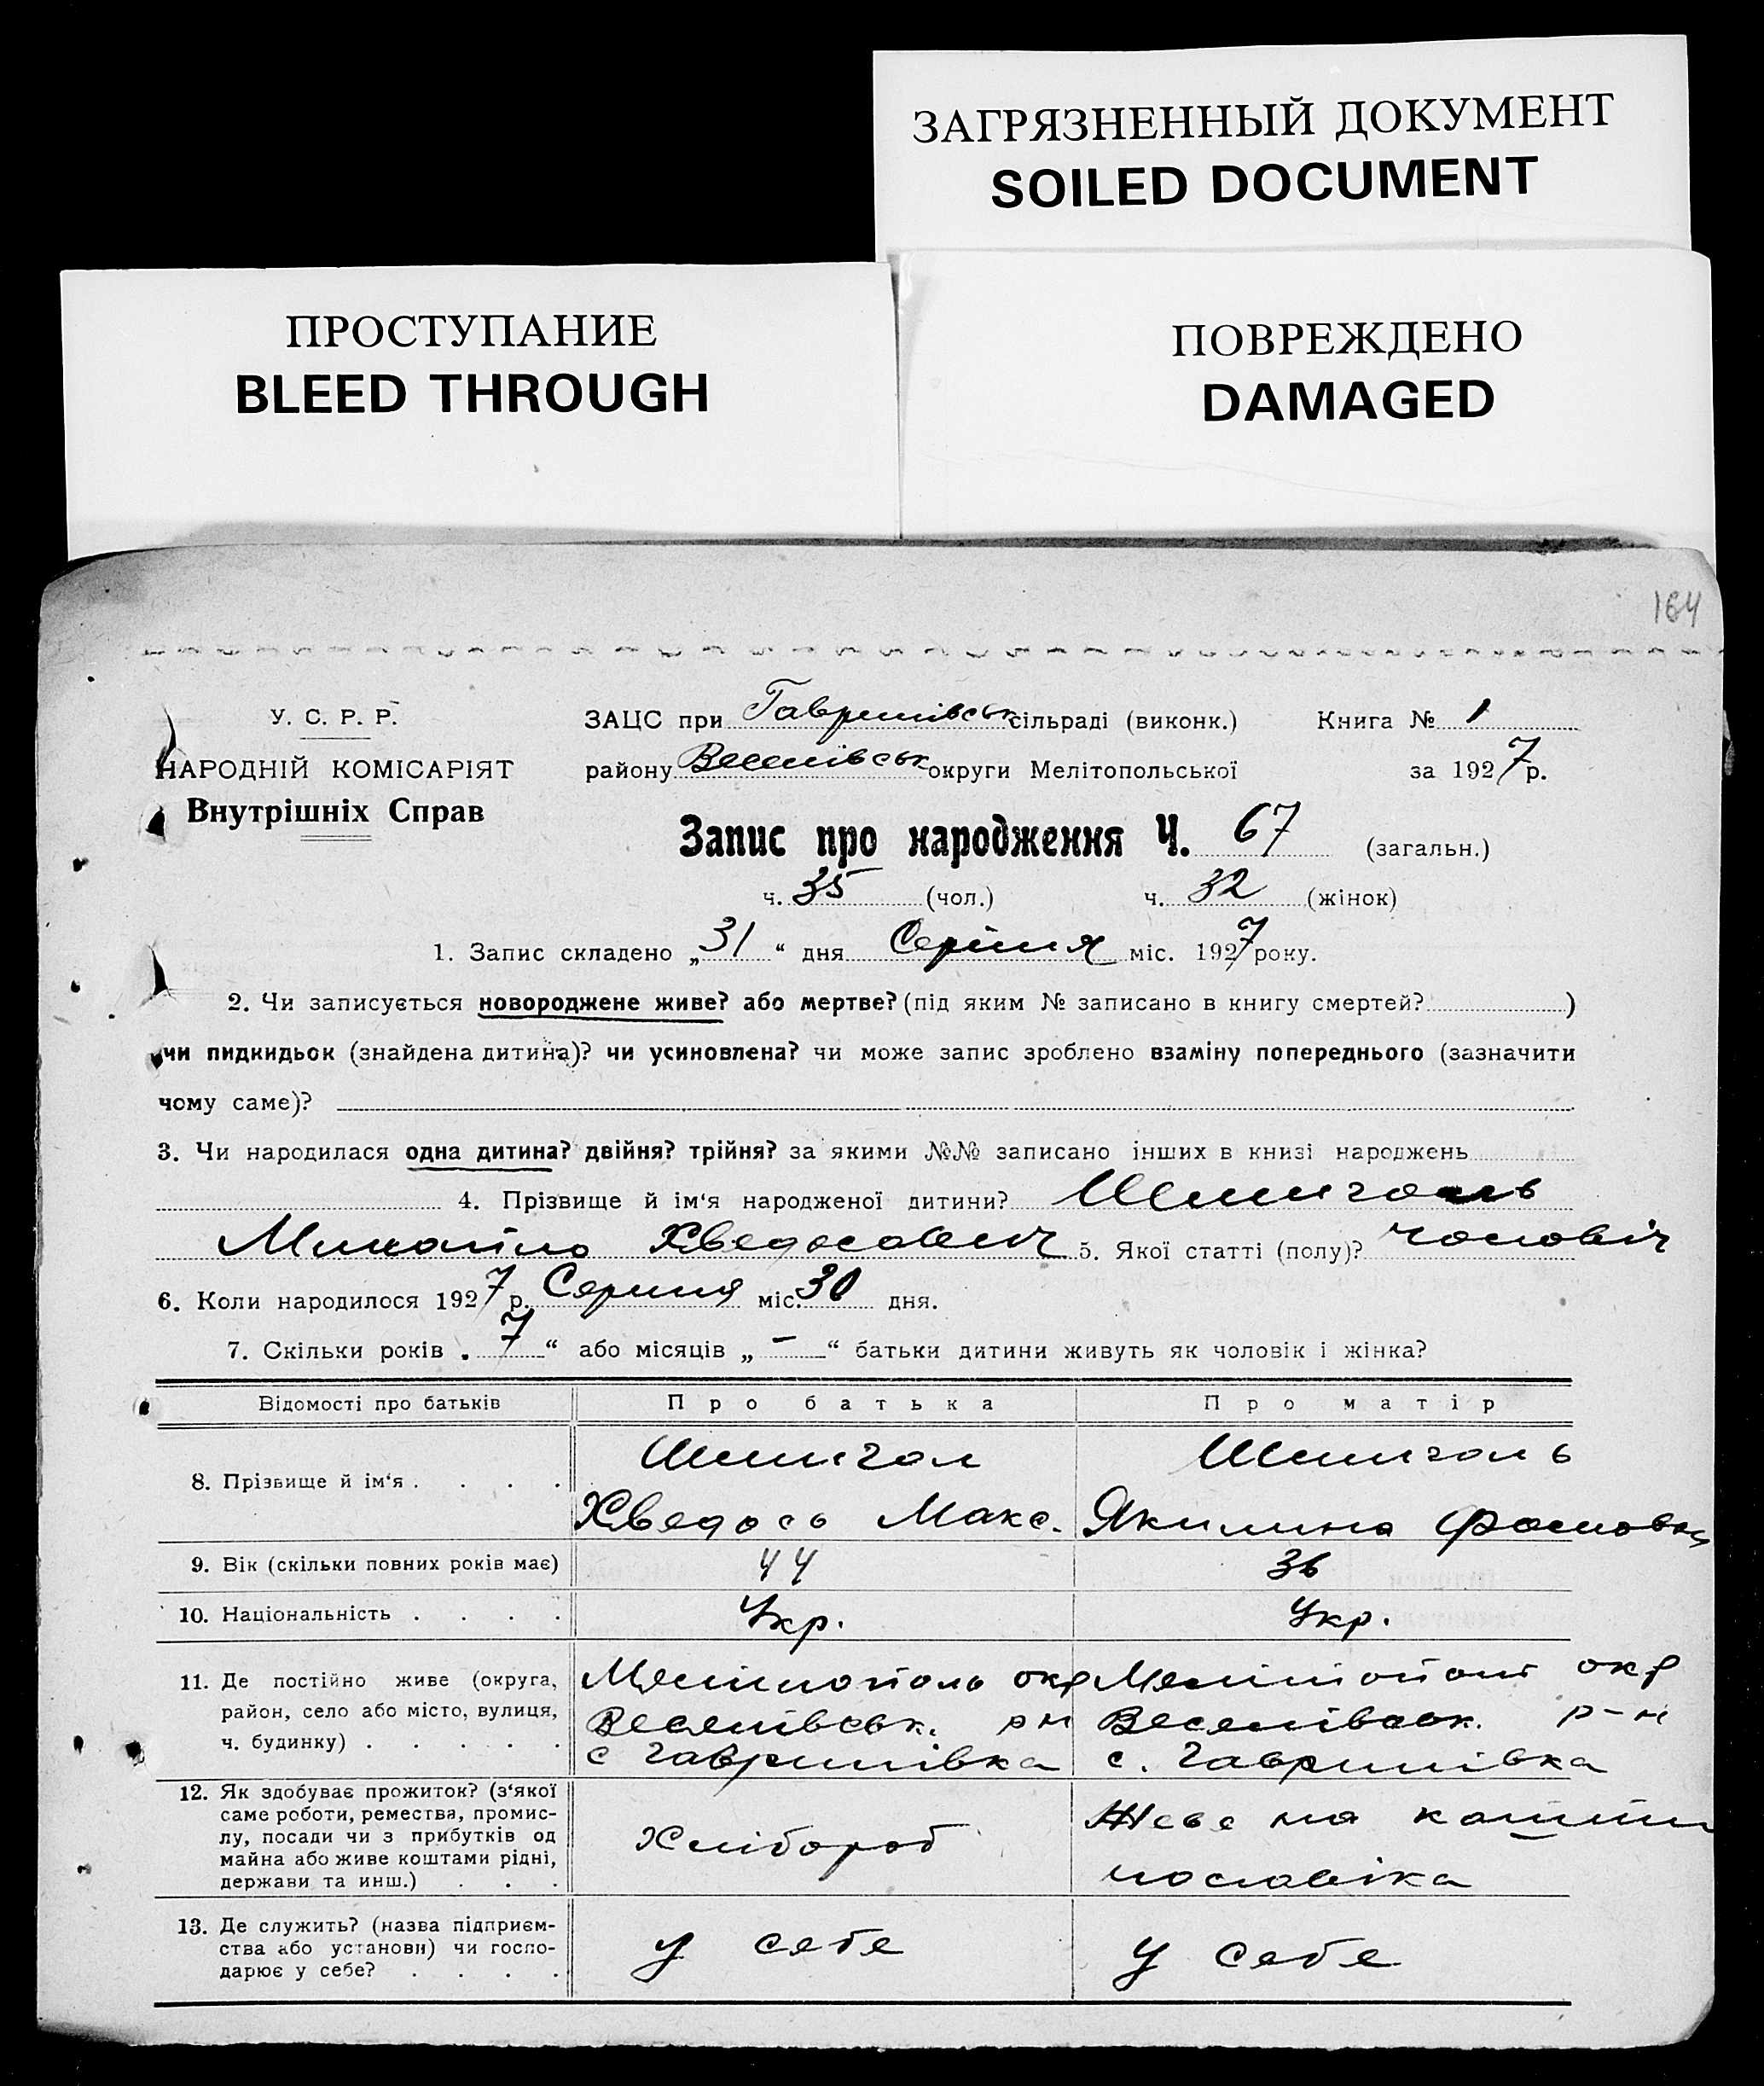 ЗАГРЯЗНЕННЫЙ ДОКУМЕНТ
SOILED DOCUMENT
ПРОСТУПАНИЕ
BLEED THROUGH
ПОВРЕЖДЕНО
DAMAGED
164
У. С. Р. Р.
НАРОДНІЙ КОМІСАРІЯТ
Внутрішніх Справ
ЗАЦС при Гаврилівськ сільраді (виконк.) Книга № 1
району Веселівськ округи Мелітопольської за 1927 р.
Запис про народження Ч. 67 (загальн.)
ч. 35 (чол.) ч. 32 (жінок)
1. Запис складено „31“ дня Серпня міс. 1927 року.
2. Чи записується новороджене живе? або мертве? (під яким № записано в книгу смертей? )
чи пидкидьок (знайдена дитина)? чи усиновлена? чи може запис зроблено взаміну попереднього (зазначити
чому саме)?
3. Чи народилася одна дитина? двійня? трійня? за якими №№ записано інших в книзі народжень
4. Прізвище й ім'я народженої дитини?
Михайло Хведосович 5. Якої статті (полу)? чоловіч
6. Коли народилося 1927 р. Серпня міс. 30 дня.
7. Скільки років „7“ або місяців „–“ батьки дитини живуть як чоловік і жінка?
Відомості про батьків Про батька Про матір
8. Прізвище й ім'я
Хведось Макс. Якилина
9. Вік (скільки повних років має) 44 36
10. Національність Укр. Укр.
11. Де постійно живе (округа,
район, село або місто, вулиця,
ч. будинку)
Мелітополь окр
Веселівськ. рн
с Гаврилівка
Мелітополь окр
Веселівськ. р-н
с. Гаврилівка
12. Як здобуває прожиток? (з'якої
саме роботи, ремества, промис-
лу, посади чи з прибутків од
майна або живе коштами рідні,
держави та инш.)
Хлібороб
Живе на кошти
чоловіка
13. Де служить? (назва підприєм-
ства або установи) чи госпо-
дарює у себе?
у себе
у себе